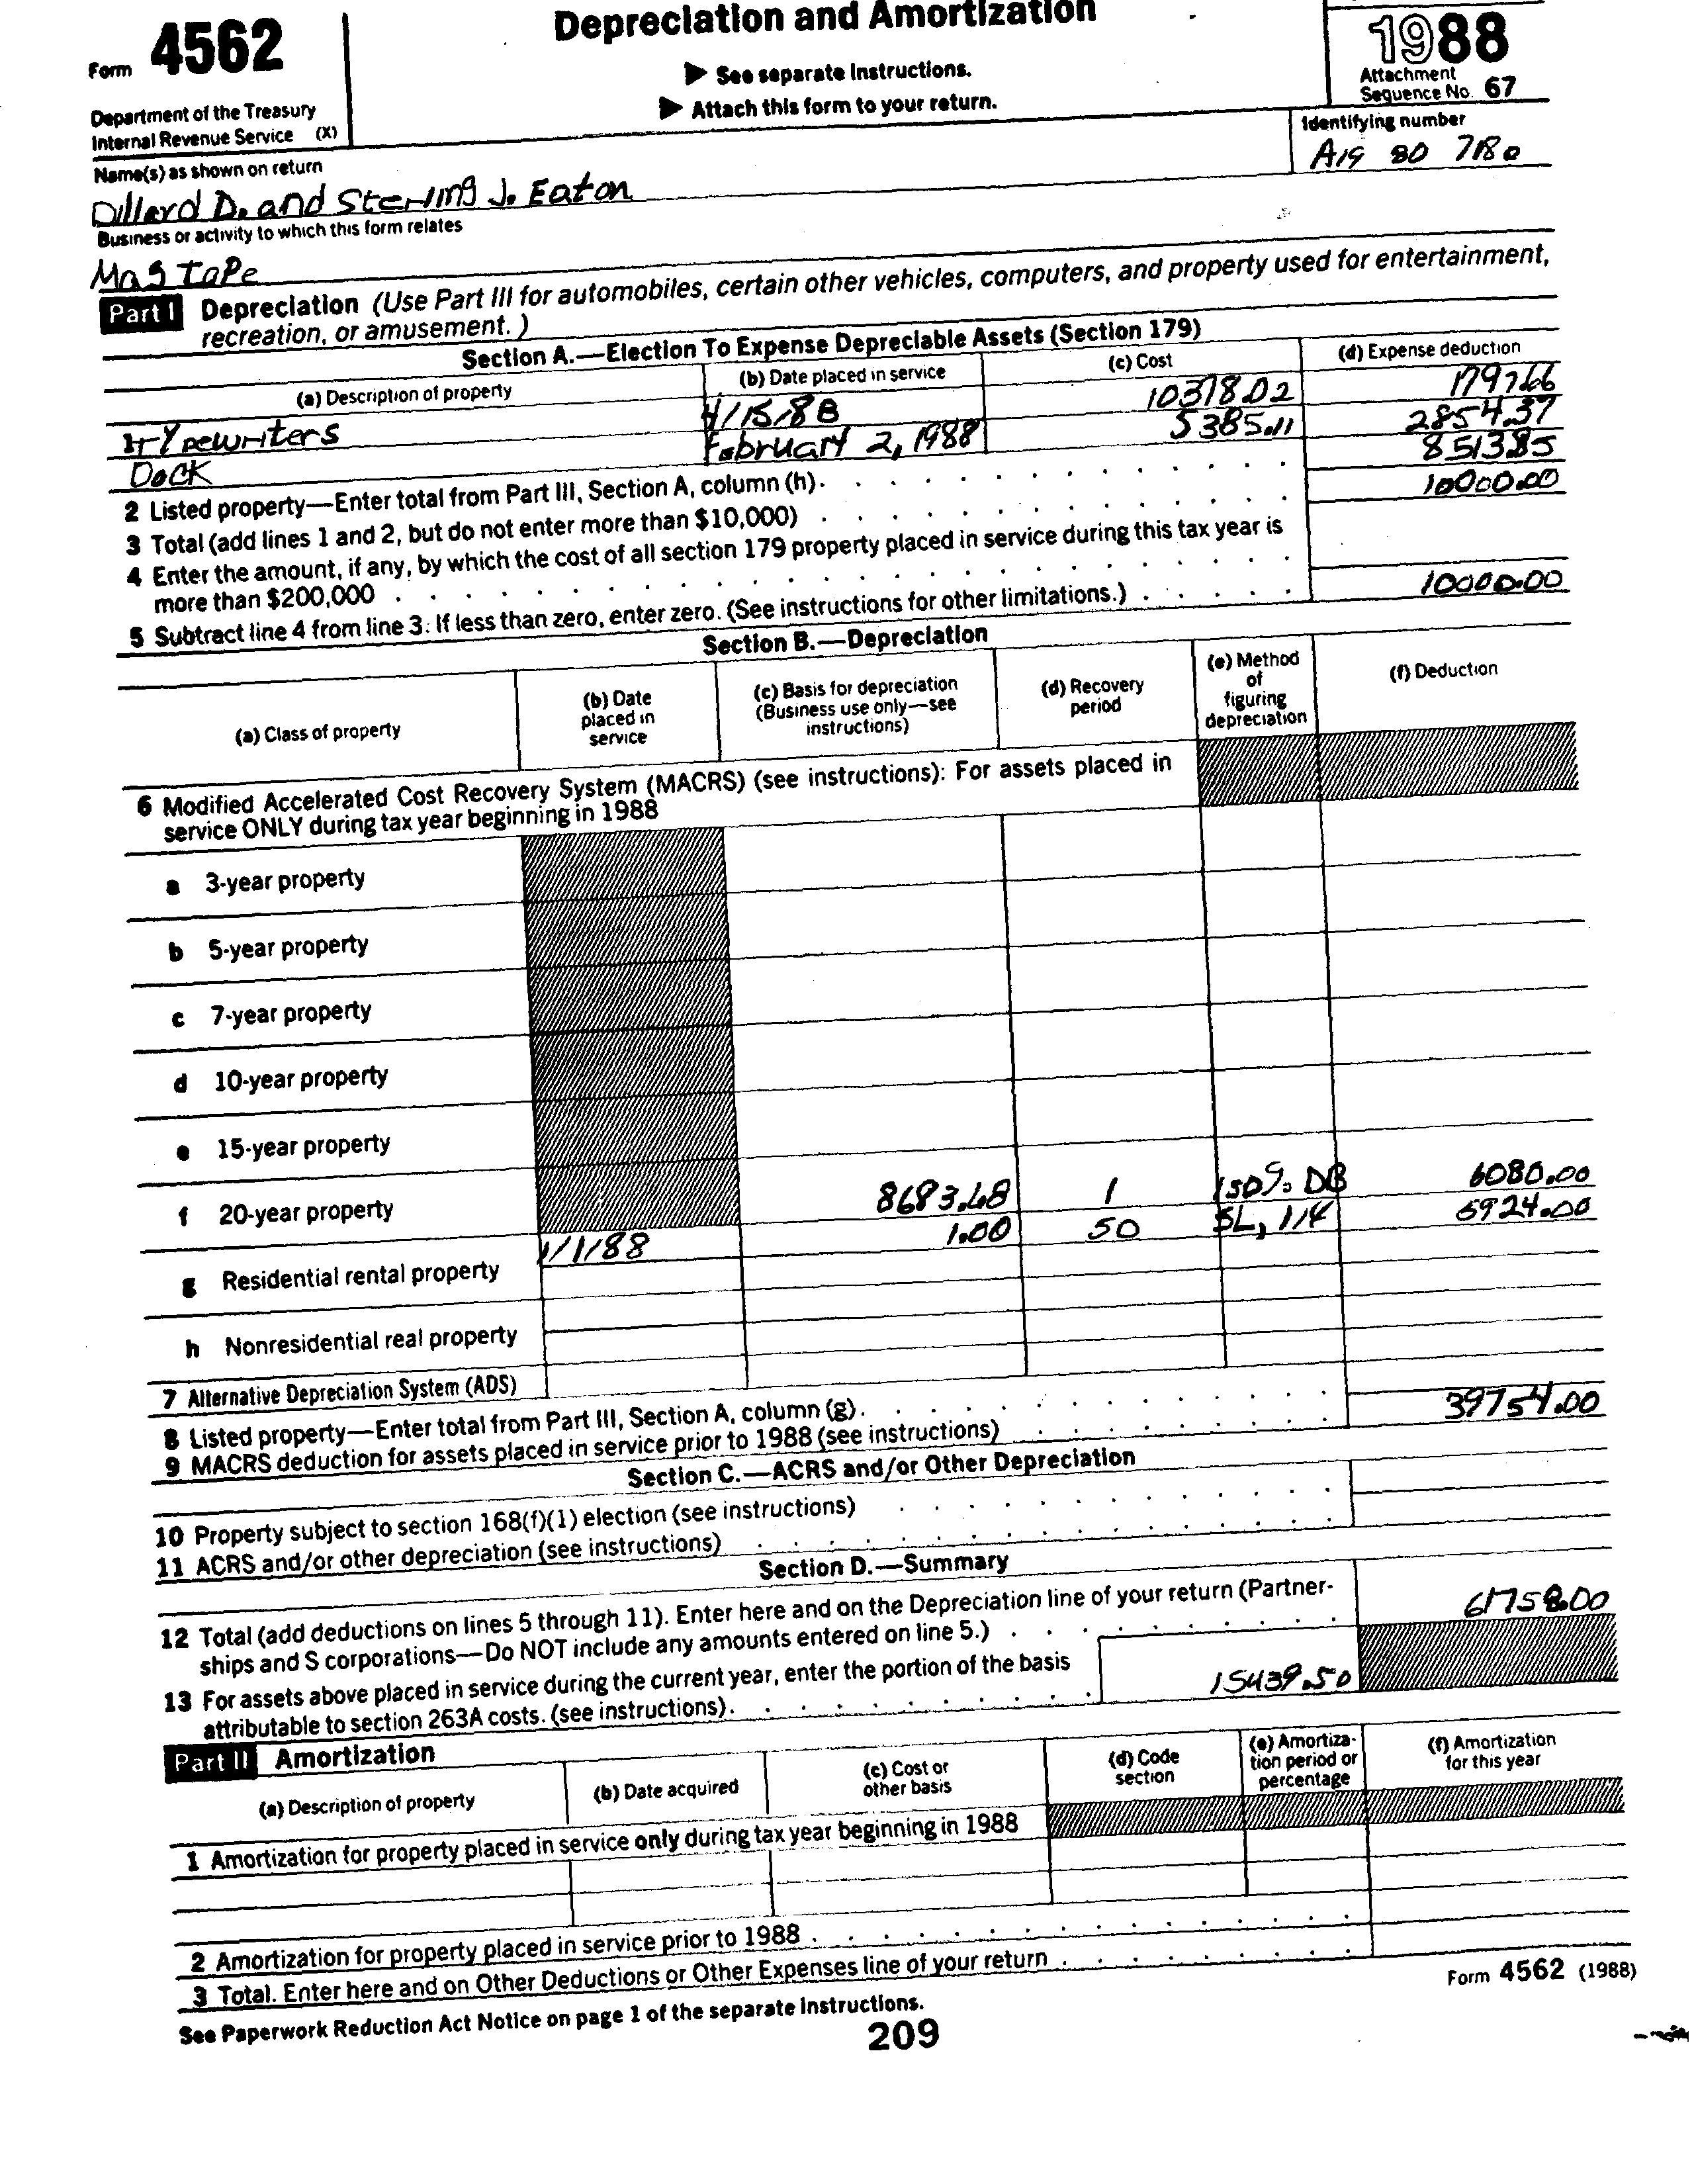 Form 4562
Department of the Treasury
Internal Revenue Service (X)
Depreciation and Amortization
▶ See separate Instructions.
▶ Attach this form to your return.
1988
Attachment
Sequence No. 67
Name(s) as shown on return
Dillard D. and Sterling J. Eaton
Identifying number
A19 80 7180
Business or activity to which this form relates
Mas Tape
Part I Depreciation (Use Part III for automobiles, certain other vehicles, computers, and property used for entertainment,
recreation, or amusement.)
Section A.—Election To Expense Depreciable Assets (Section 179)
(a) Description of property (b) Date placed in service (c) Cost (d) Expense deduction
Typewriters 4/15/88 10378.02
Dock February 2, 1988 5385.11 2854.37
2 Listed property—Enter total from Part III, Section A, column (h). 8513.85
3 Total (add lines 1 and 2, but do not enter more than $10,000) 10000.00
4 Enter the amount, if any, by which the cost of all section 179 property placed in service during this tax year is
more than $200,000
5 Subtract line 4 from line 3. If less than zero, enter zero. (See instructions for other limitations.) 10000.00
Section B.—Depreciation
(a) Class of property (b) Date placed in service (c) Basis for depreciation (Business use only—see instructions) (d) Recovery period (e) Method of figuring depreciation (f) Deduction
6 Modified Accelerated Cost Recovery System (MACRS) (see instructions): For assets placed in
service ONLY during tax year beginning in 1988
a 3-year property
b 5-year property
c 7-year property
d 10-year property
e 15-year property
f 20-year property 8683.48 1 150% DB 6080.00
g Residential rental property 1/1/88 1.00 50 SL, 1/4 5924.00
h Nonresidential real property
7 Alternative Depreciation System (ADS)
8 Listed property—Enter total from Part III, Section A, column (g). 39754.00
9 MACRS deduction for assets placed in service prior to 1988 (see instructions)
Section C.—ACRS and/or Other Depreciation
10 Property subject to section 168(f)(1) election (see instructions)
11 ACRS and/or other depreciation (see instructions)
Section D.—Summary
12 Total (add deductions on lines 5 through 11). Enter here and on the Depreciation line of your return (Partner-
ships and S corporations—Do NOT include any amounts entered on line 5.) 61758.00
13 For assets above placed in service during the current year, enter the portion of the basis
attributable to section 263A costs. (see instructions). 15439.50
Part II Amortization
(a) Description of property (b) Date acquired (c) Cost or other basis (d) Code section (e) Amortiza-tion period or percentage (f) Amortization for this year
1 Amortization for property placed in service only during tax year beginning in 1988
2 Amortization for property placed in service prior to 1988
3 Total. Enter here and on Other Deductions or Other Expenses line of your return
See Paperwork Reduction Act Notice on page 1 of the separate Instructions.
Form 4562 (1988)
209